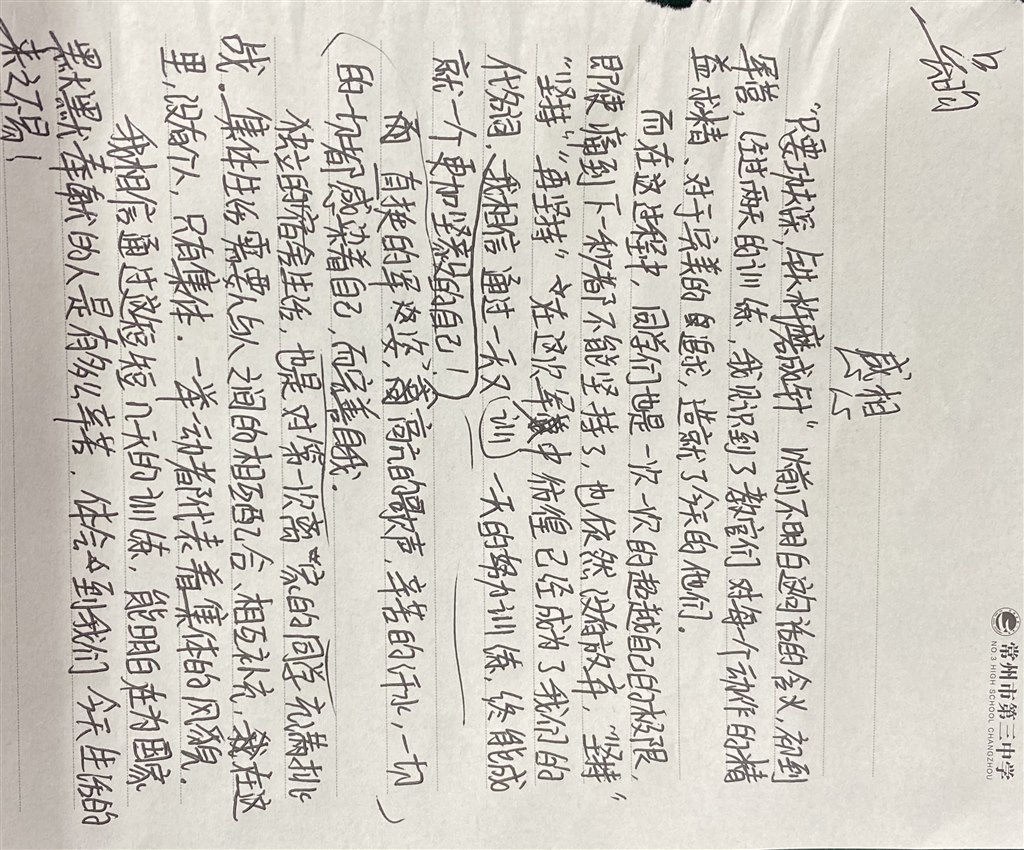 常州市第三中学
NO.3 HIGH SCHOOL CHANGZHOU
感想
“只要功夫深，铁杵磨成针”以前不明白这句话的含义，初到
军营，经过两天的训练，我见识到了教官们对每个动作的精
益求精、对于完美的追求，造就了今天的他们。
而在这过程中，同学们也是一次一次的超越自己的极限，
即使痛到下一秒都不能坚持了，也依然没有放弃，“坚持”
“坚持”“再坚持”在这次军中仿惶已经成为了我们的
代名词。我相信通过一天又训一天的努力训练，终能成
就一个更加坚毅的自己！
而直挨的军姿，高亢的歌声，辛苦的汗水，一切
的一切都感染着自己，而完善自我。
独立的宿舍生活，也是对第一次离家的同学充满挑
战。集体生活需要人与人之间的相互配合、相互补充，在这
里，没有个人，只有集体．一举一动都代表着集体的风貌．
我相信通过这短短几天的训练，能明白在为国家
默默奉献的人是有多么辛苦，体会到我们今天生活的
来之不易！